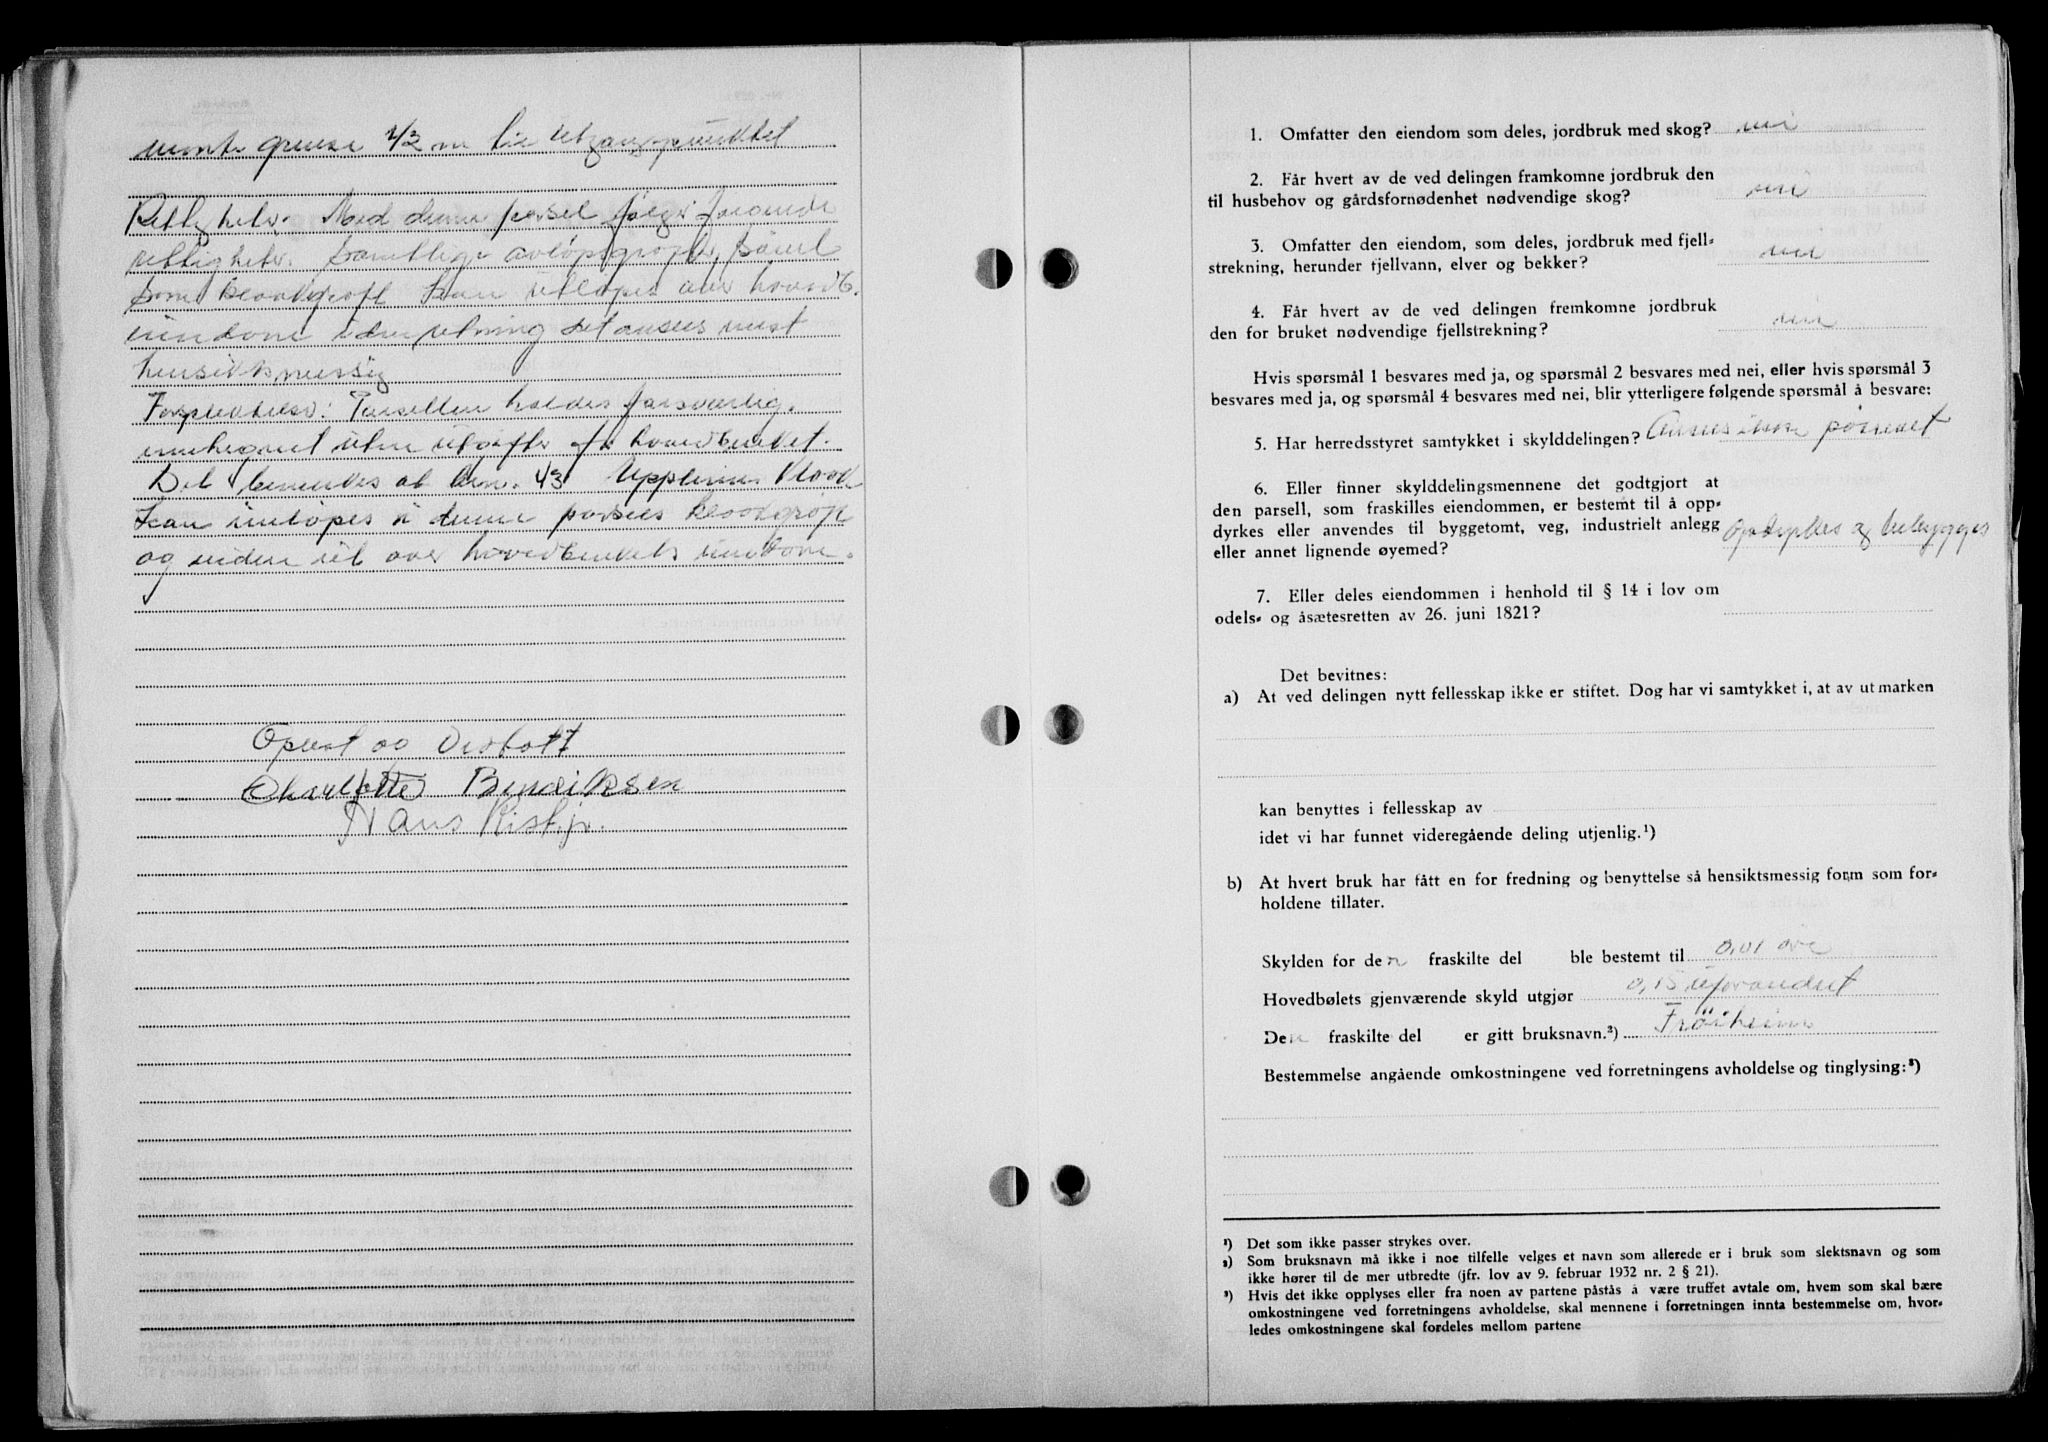 grense 43 m til utgangspunktet
Rettigheter. Med denne parsel følger følgende
rettigheter. Samtlige avløpsgrøfter, såvel
som kloakgrøft kan utløpes over hovedb.
eiendom i den retning det ansees mest
hensiktsmessig
Forpliktelser: Parsellen holdes forsvarlig
innhegnet uten utgifter for hovedbruket.
Det bemerkes at br.n. 43 kloak
kan innløpes i denne parsels kloakgrøft
og videre ut over hovedbrukets eiendom.
Oplest og vedtatt
Charlotte Bendiksen
Hans Rist jr.
1. Omfatter den eiendom som deles, jordbruk med skog? nei
2. Får hvert av de ved delingen framkomne jordbruk den
til husbehov og gårdsfornødenhet nødvendige skog? nei
3. Omfatter den eiendom, som deles, jordbruk med fjell-
strekning, herunder fjellvann, elver og bekker? nei
4. Får hvert av de ved delingen fremkomne jordbruk
den for bruket nødvendige fjellstrekning? nei
Hvis spørsmål 1 besvares med ja, og spørsmål 2 besvares med nei, eller hvis spørsmål 3
besvares med ja, og spørsmål 4 besvares med nei, blir ytterligere følgende spørsmål å besvare:
5. Har herredsstyret samtykket i skylddelingen? Ansees ikke påkrevet
6. Eller finner skylddelingsmennene det godtgjort at
den parsell, som fraskilles eiendommen, er bestemt til å opp-
dyrkes eller anvendes til byggetomt, veg, industrielt anlegg
eller annet lignende øyemed? Opdyrkes og bebygges
7. Eller deles eiendommen i henhold til § 14 i lov om
odels- og åsætesretten av 26. juni 1821?
Det bevitnes:
a) At ved delingen nytt fellesskap ikke er stiftet. Dog har vi samtykket i, at av utmarken
kan benyttes i fellesskap av
idet vi har funnet videregående deling utjenlig.¹)
b) At hvert bruk har fått en for fredning og benyttelse så hensiktsmessig form som for-
holdene tillater.
Skylden for den fraskilte del ble bestemt til 0,01 øre
Hovedbølets gjenværende skyld utgjør 0,15 uforandret
Den fraskilte del er gitt bruksnavn.²) Fröiheim
Bestemmelse angående omkostningene ved forretningens avholdelse og tinglysing:³)
¹) Det som ikke passer strykes over.
²) Som bruksnavn må ikke i noe tilfelle velges et navn som allerede er i bruk som slektsnavn og som
ikke hører til de mer utbredte (jfr. lov av 9. februar 1932 nr. 2 § 21).
³) Hvis det ikke opplyses eller fra noen av partene påstås å være truffet avtale om, hvem som skal bære
omkostningene ved forretningens avholdelse, skal mennene i forretningen innta bestemmelse om, hvor-
ledes omkostningene skal fordeles mellom partene